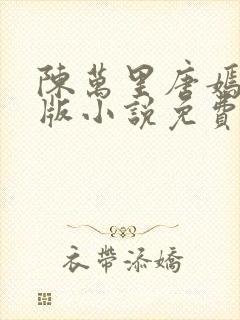 陳萬里唐嫣
版小說免費
衣帶添嬌